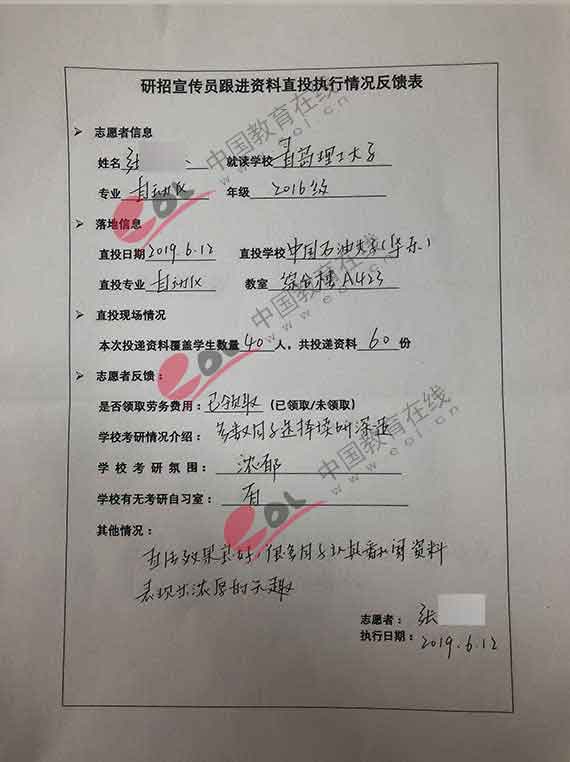 研招宣传员跟进资料直投执行情况反馈表
➢ 志愿者信息
姓名 张 就读学校 青岛理工大学
专业 自动化 年级 2016级
➢ 落地信息
直投日期 2019.6.12 直投学校 中国石油大学(华东)
直投专业 自动化 教室 综合楼A423
➢ 直投现场情况
本次投递资料覆盖学生数量 40 人，共投递资料 60 份
➢ 志愿者反馈：
是否领取劳务费用：已领取（已领取/未领取）
学校考研情况介绍：多数同学选择读研深造
学校考研氛围：浓郁
学校有无考研自习室：有
其他情况：
直投效果良好，很多同学认真翻阅资料
表现出浓厚的兴趣
志愿者：张
执行日期：2019.6.12
eol 中国教育在线
www.eol.cn
eol 中国教育在线
www.eol.cn
eol 中国教育在线
www.eol.cn